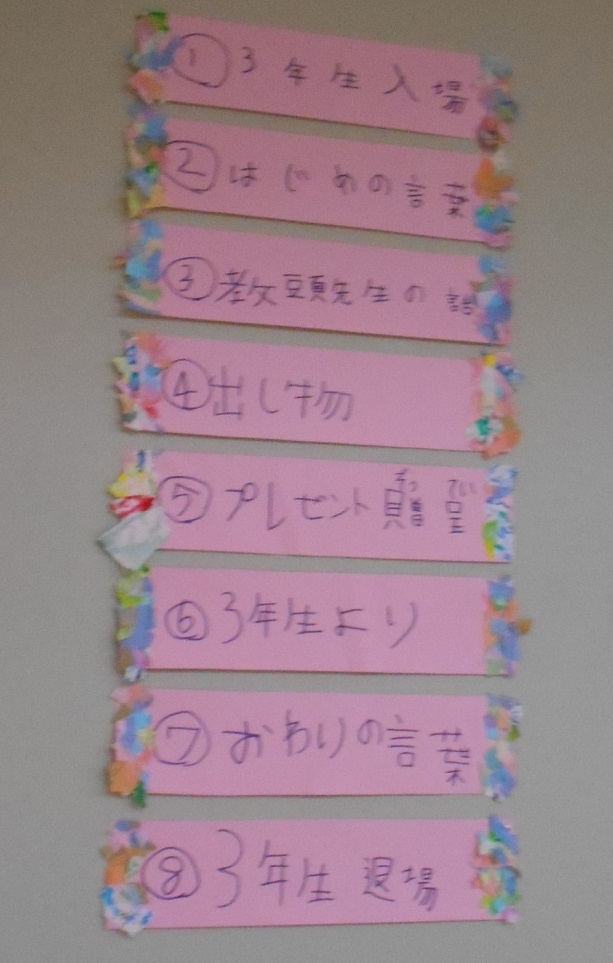 ①3年生入場
②はじめの言葉
③教頭先生の話
④出し物
⑤プレゼント贈呈
⑥3年生より
⑦おわりの言葉
⑧3年生退場